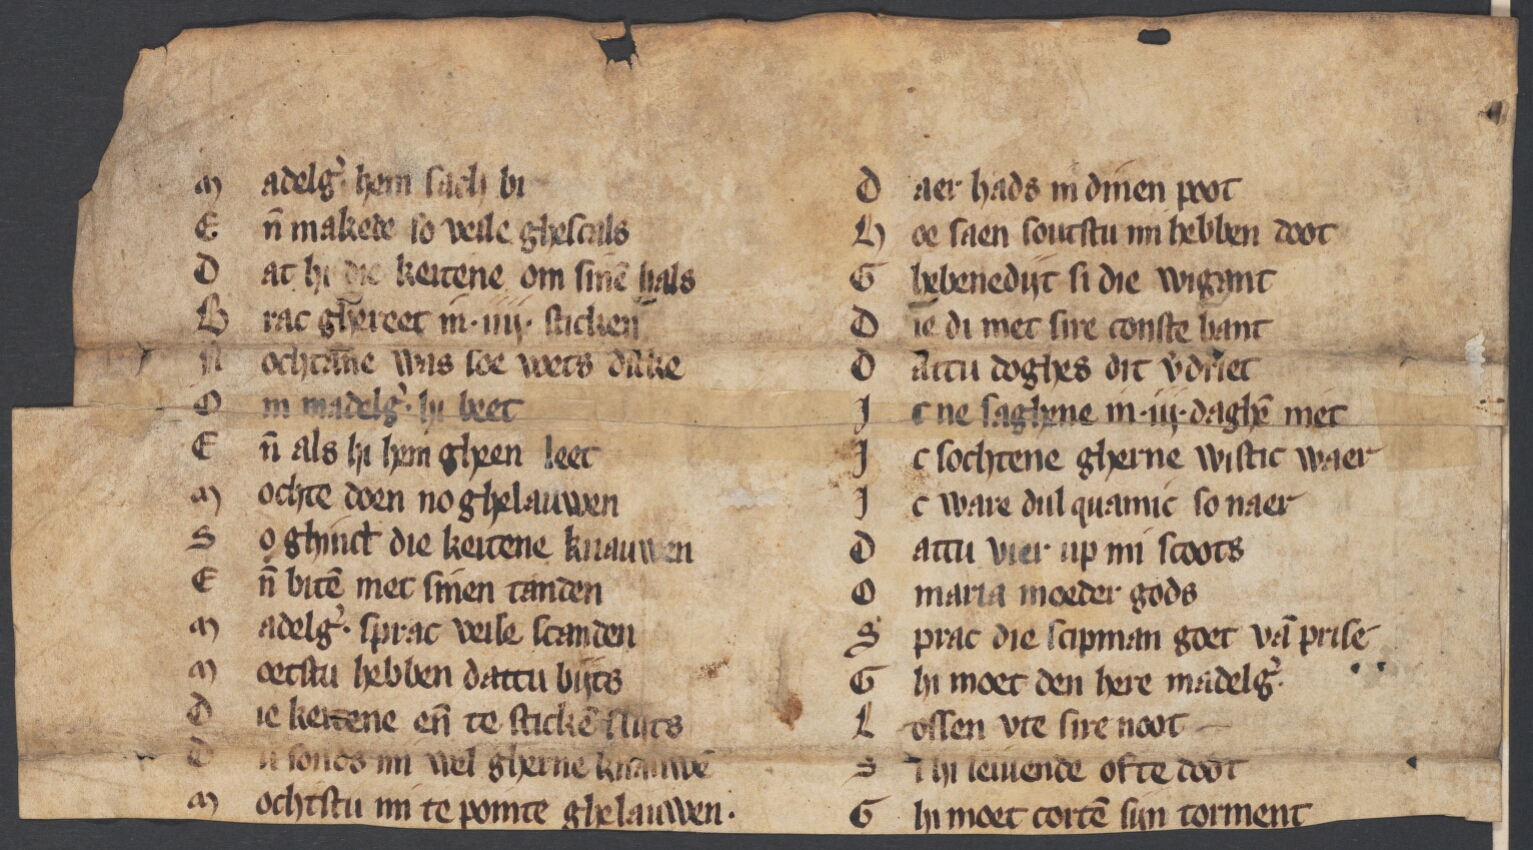 M adelgʾ. hem sach bi
E n̄ makede so veile ghescals
D at hi die keitene om sinē hals
B rac ghereet in .iiij. sticken
N ochtāne was soe vets dicke
O m madelgʾ. hi beet
E n̄ als hi hem gheen leet
M ochte doen no ghelauwen
S o ghinct die keitene knauwen
E n̄ bitē met sinen tanden
M adelgʾ. sprac veile scanden
M oetstu hebben dattu bijts
D ie keitene en̄ te stickē slijts
D u souds mi wel gherne knauwē
M ochtstu mi te pointe ghelauwen.
D aer hads in dinen poot
H oe saen soutstu mi hebben doot
G hebenedijt si die wigant
D ie di met sire conste bant
D attu doghes dit v̓driet
I c ne saghene in .iij. daghē niet
I c sochtene gherne wistic waer
I c ware dul quamic so naer
D attu vier up mi scoots
O maria moeder gods
S prac die scipman goet vā prise
G hi moet den here madelgʾ.
L ossen vte sire noot
S i hi leuende ofte doot
G hi moet cortē sijn torment